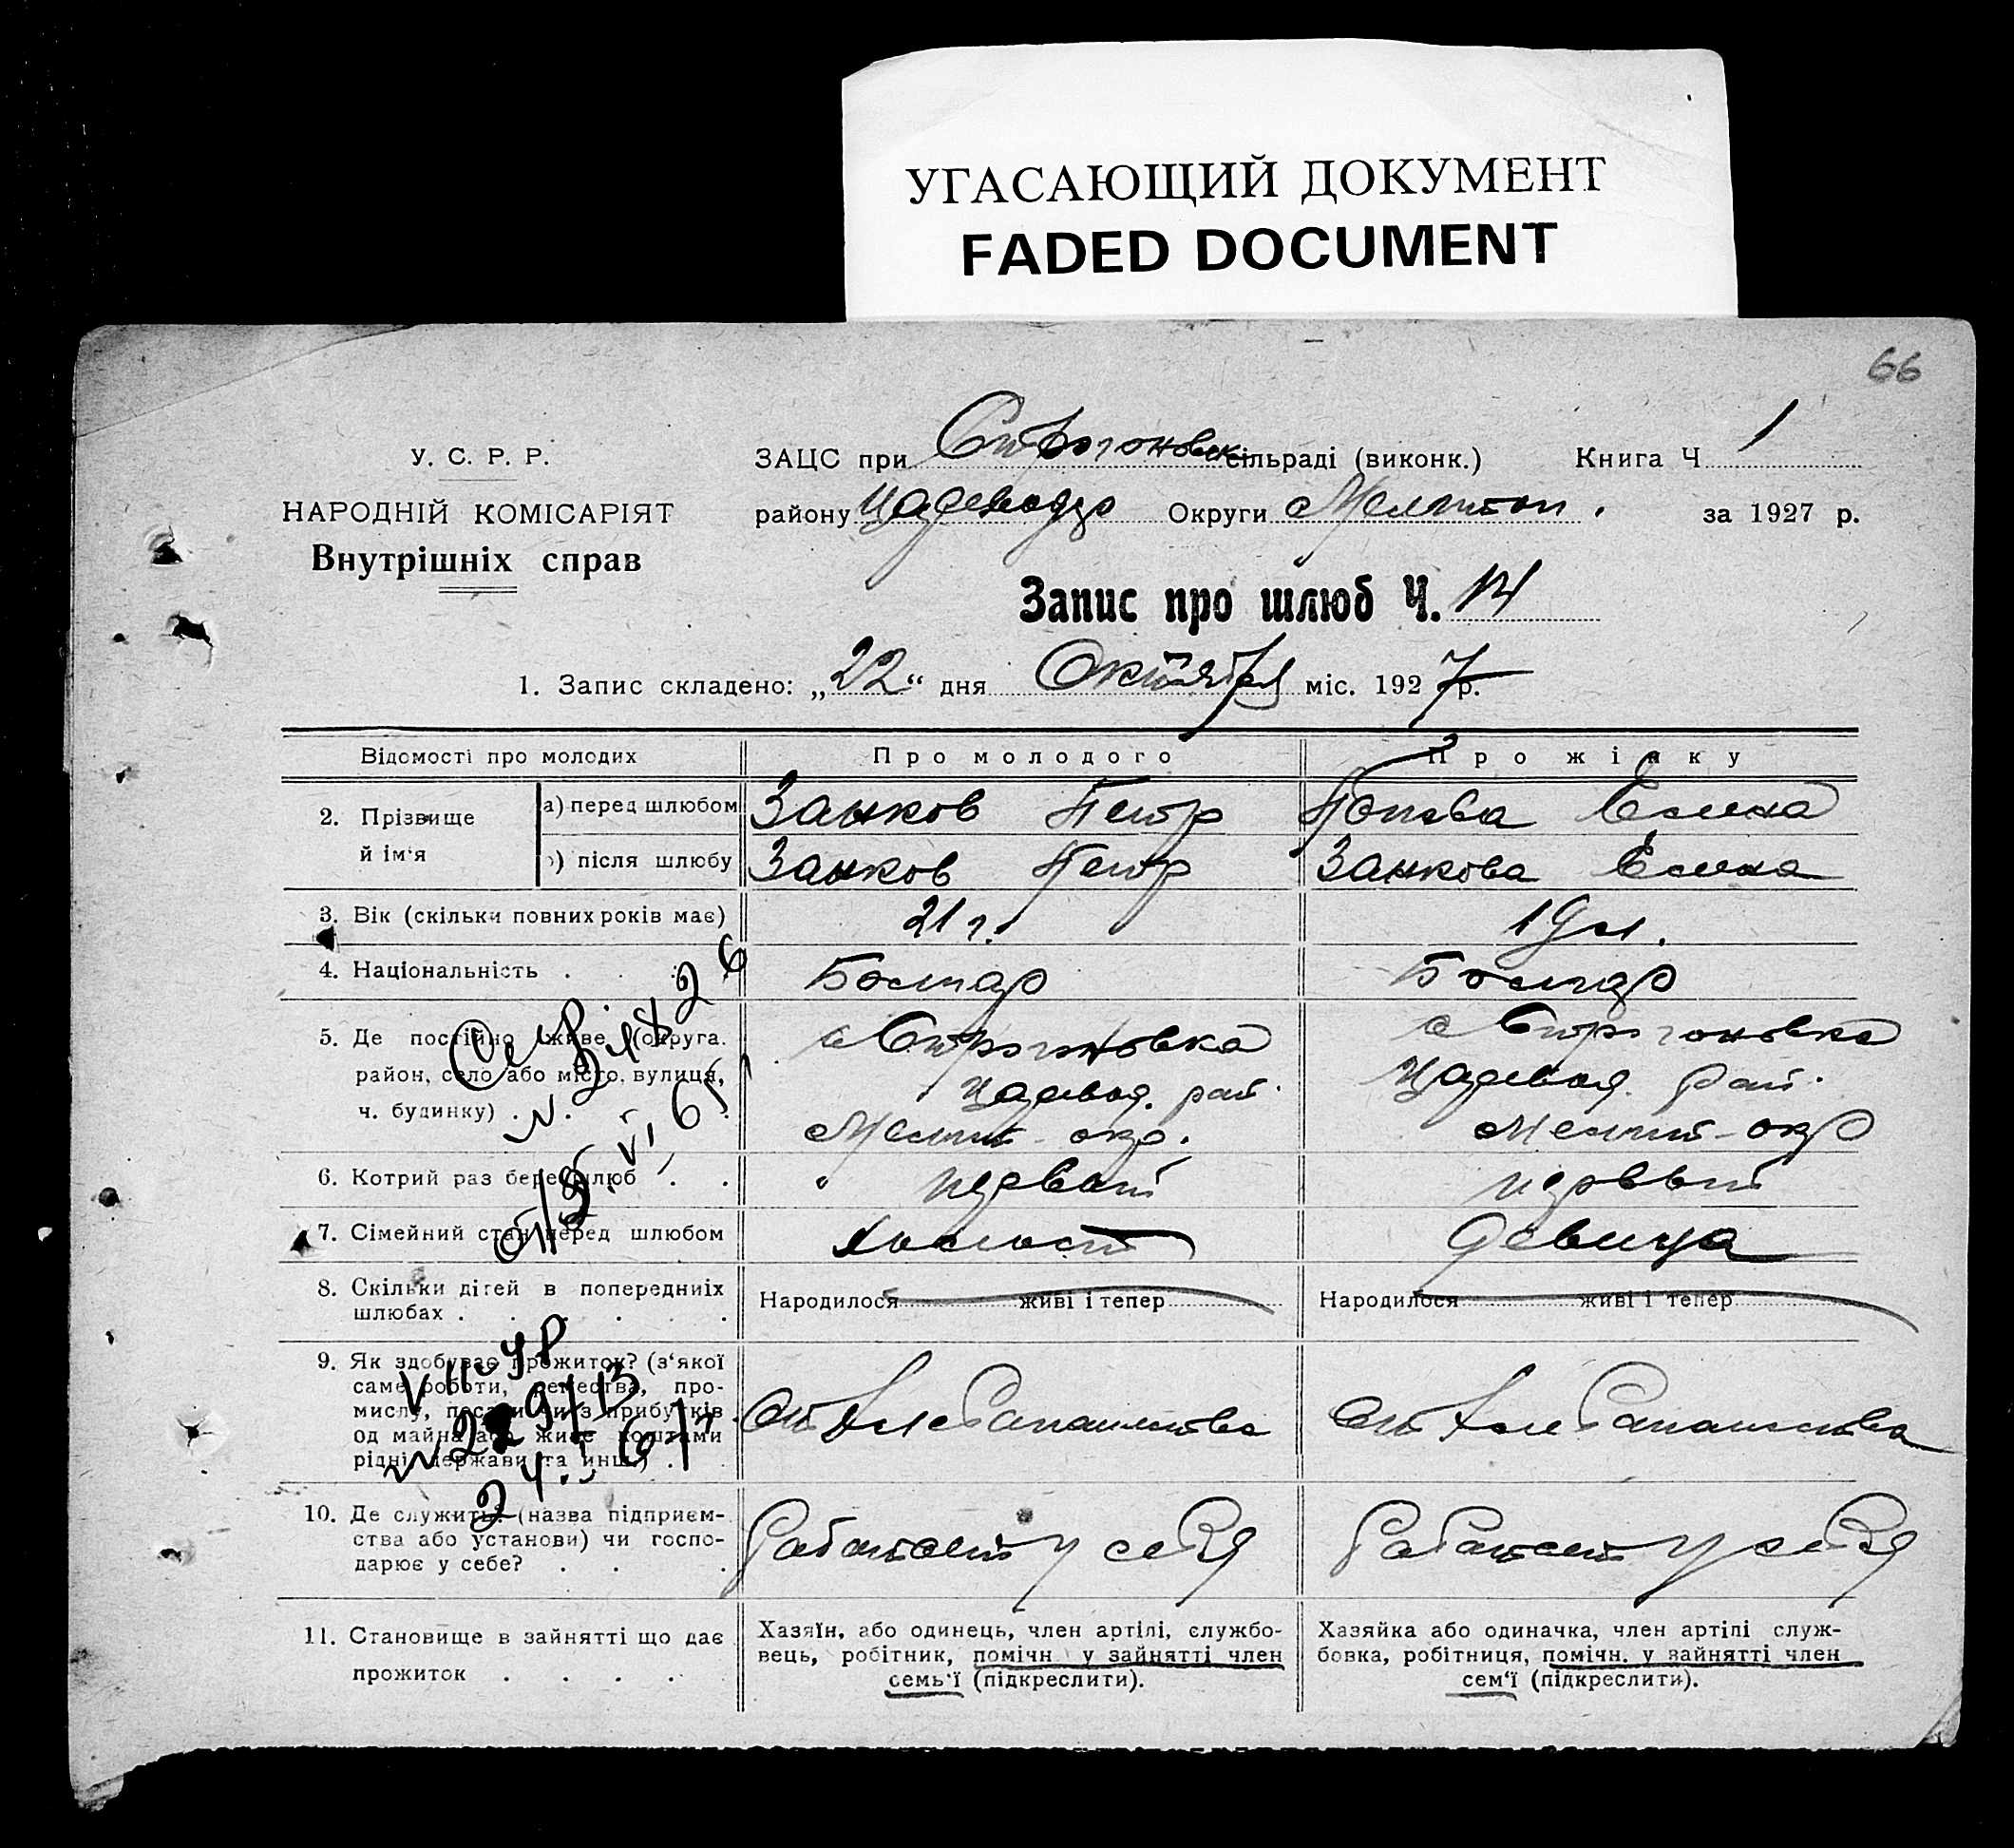 УГАСАЮЩИЙ ДОКУМЕНТ
FADED DOCUMENT
66
У. С. Р. Р.
НАРОДНІЙ КОМІСАРІЯТ
Внутрішніх справ
ЗАЦС при Строгоновск сільраді (виконк.) Книга Ч 1
району Округи Мелитоп. за 1927 р.
Запис про шлюб Ч. 14
1. Запис складено: „22“ дня Октября міс. 1927 р.
Відомості про молодих Про молодого Про жінку
2. Прізвище й ім‘я
а) перед шлюбом Занков Петр Попова Елена
б) після шлюбу Занков Петр Занкова Елена
3. Вік (скільки повних років має) 21 г. 19 л.
4. Національність . Болгар Болгар
5. Де постійно живе (округа. с Строгоновка с Строгоновка
район, село або місто, вулиця, Царевод. рай. Царевод. рай.
ч. будинку) . Мелит-окр. Мелит-окр
6. Котрий раз бере шлюб . . первый первый
7. Сімейний стан перед шлюбом холост девица
8. Скільки дітей в попередніїх Народилося живі і тепер Народилося живі і тепер
шлюбах . . . . . .
9. Як здобуває прожиток? (з‘якої
саме роботи, ремества, про-
мислу, посади чи з прибутків от Хлебопашества от Хлебопашества
од майна або живе коштами
рідні держави та инш.) .
10. Де служить? (назва підприєм-
ства або установи) чи госпо- Работает у себя Работает у себя
дарює у себе? . . .
11. Становище в зайнятті що дає
прожиток . . . .
Хазяїн, або одинець, член артілі, службо-
вець, робітник, помічн у зайнятті член
семь‘ї (підкреслити).
Хазяйка або одиначка, член артілі служ-
бовка, робітниця, помічн. у зайнятті член
сем‘ї (підкреслити).